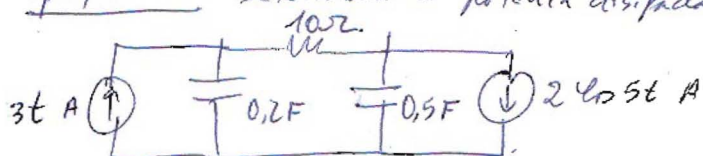 potencia disipada
10Ω
3t A
0,2F
0,5F
2 cos 5t A